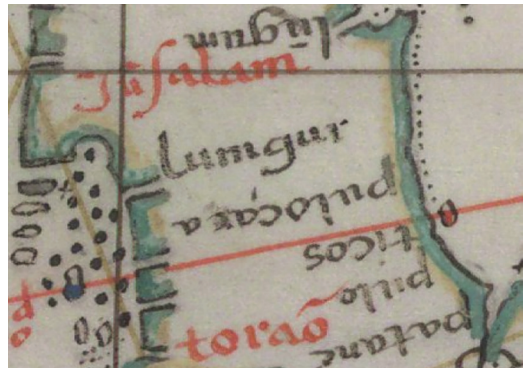 lūgum
Jūsalam
lumgur
puloçara
ticos
pulo
toraõ
patane